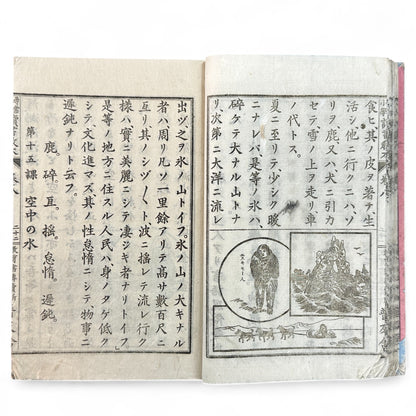 食ヒ其ノ皮ヲ著テ生
活シ他ニ行クニハソ
リヲ鹿又ハ犬ニ引カ
セテ雪ノ上ヲ走リ車
ノ代トス。
夏ニ至リテ少シク暖
ニナレバ是等ノ氷ハ
碎ケテ大ナル山トナ
リ次第ニ大洋ニ流レ
出ヅ之ヲ氷ノ山トイフ。氷ノ山ノ大キナル
者ハ周リ凡ソ一里餘アリテ高サ數百尺ニ
亙リ其ノシヅ〳〵ト波ニ搖レテ流レ行ク
樣ハ實ニ美麗ニシテ凄ジキ者ナリトイフ。
是等ノ地方ニ住スル人民ハ身ノタケ低ク
シテ文化進マズ其ノ性怠惰ニシテ物事ニ
遲鈍ナリト云フ。
鹿。碎。亙。搖。怠惰。遲鈍。
第十五課 空中の水